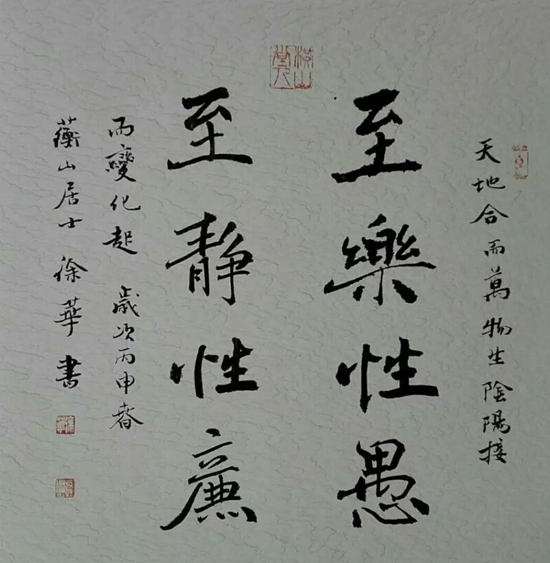 天地合而萬物生陰陽接
至樂性愚
至静性廉
而變化起 歲次丙申春
蘅山居士徐華書